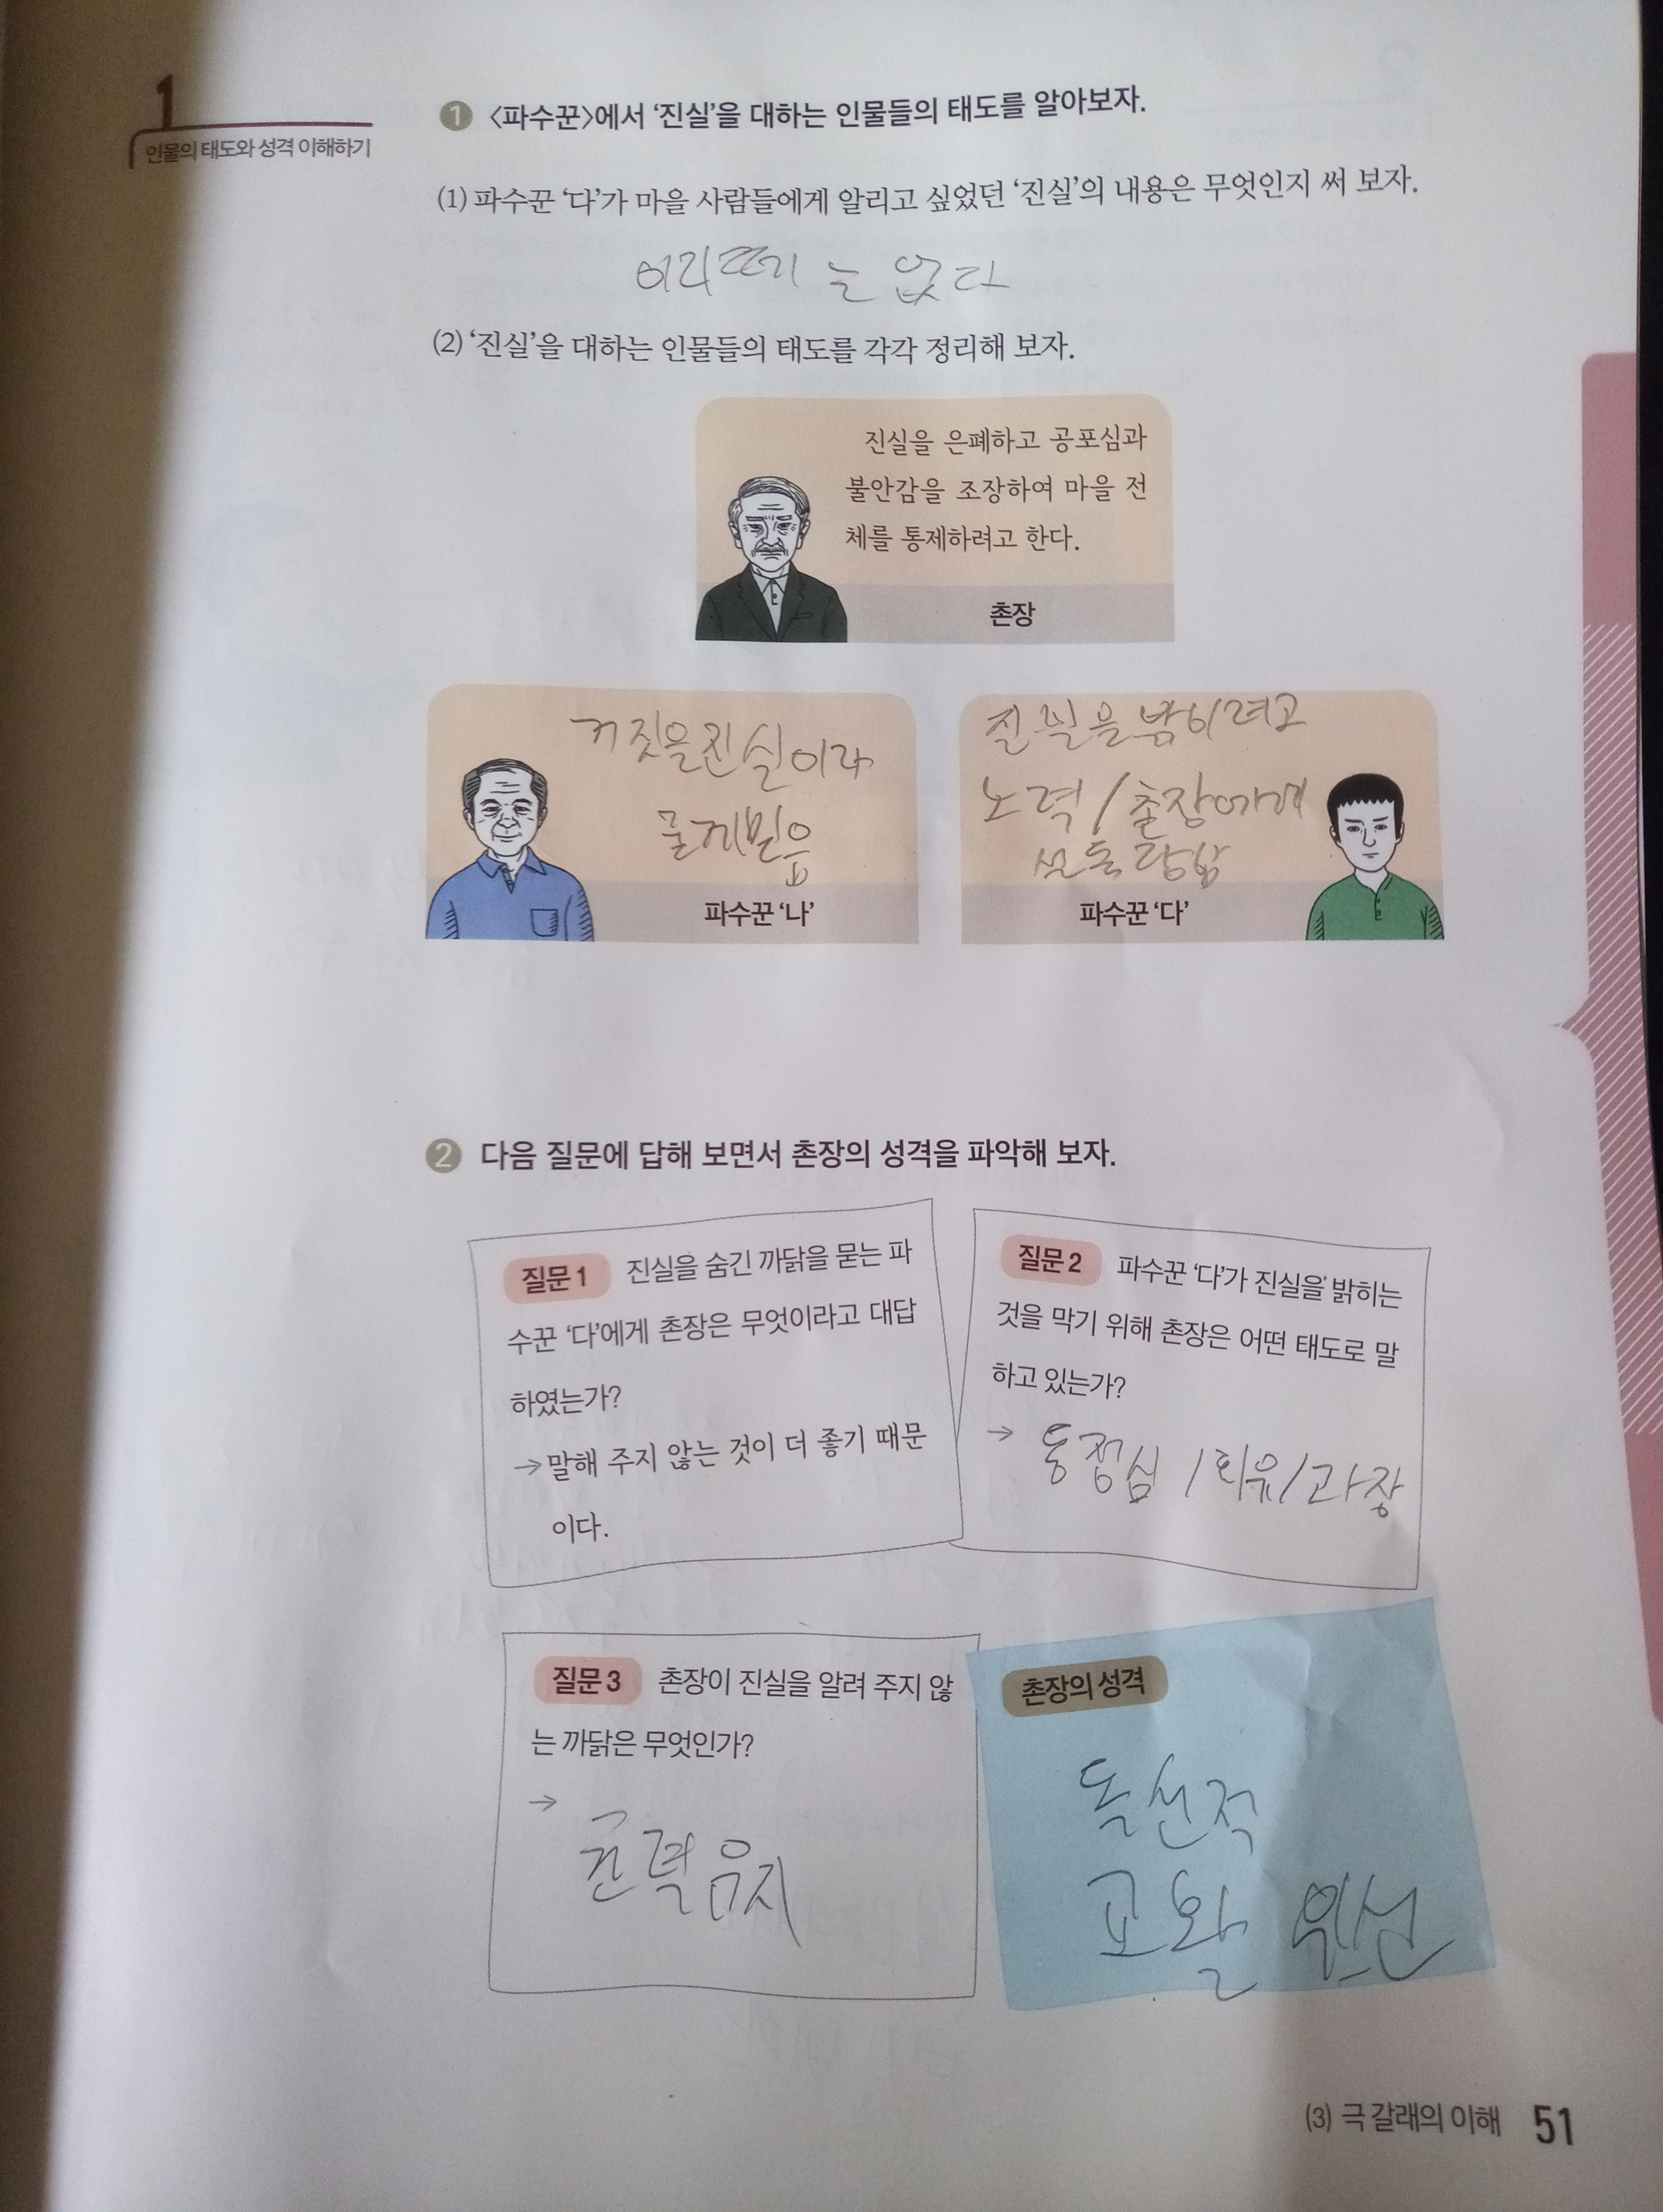 1
인물의 태도와 성격 이해하기
1 <파수꾼>에서 '진실'을 대하는 인물들의 태도를 알아보자.
(1) 파수꾼 '다'가 마을 사람들에게 알리고 싶었던 '진실'의 내용은 무엇인지 써 보자.
이리떼는 없다
(2) '진실'을 대하는 인물들의 태도를 각각 정리해 보자.
진실을 은폐하고 공포심과
불안감을 조장하여 마을 전
체를 통제하려고 한다.
촌장
거짓을 진실이라
믿음
파수꾼 '나'
진실을 밝히려고
노력 / 촌장에게
설득당함
파수꾼 '다'
2 다음 질문에 답해 보면서 촌장의 성격을 파악해 보자.
질문 1 진실을 숨긴 까닭을 묻는 파
수꾼 '다'에게 촌장은 무엇이라고 대답
하였는가?
→ 말해 주지 않는 것이 더 좋기 때문
이다.
질문 2 파수꾼 '다'가 진실을 밝히는
것을 막기 위해 촌장은 어떤 태도로 말
하고 있는가?
→ 동정심 / 회유 / 과장
질문 3 촌장이 진실을 알려 주지 않
는 까닭은 무엇인가?
→
권력유지
촌장의 성격
독선적
교활 위선
(3) 극 갈래의 이해 51